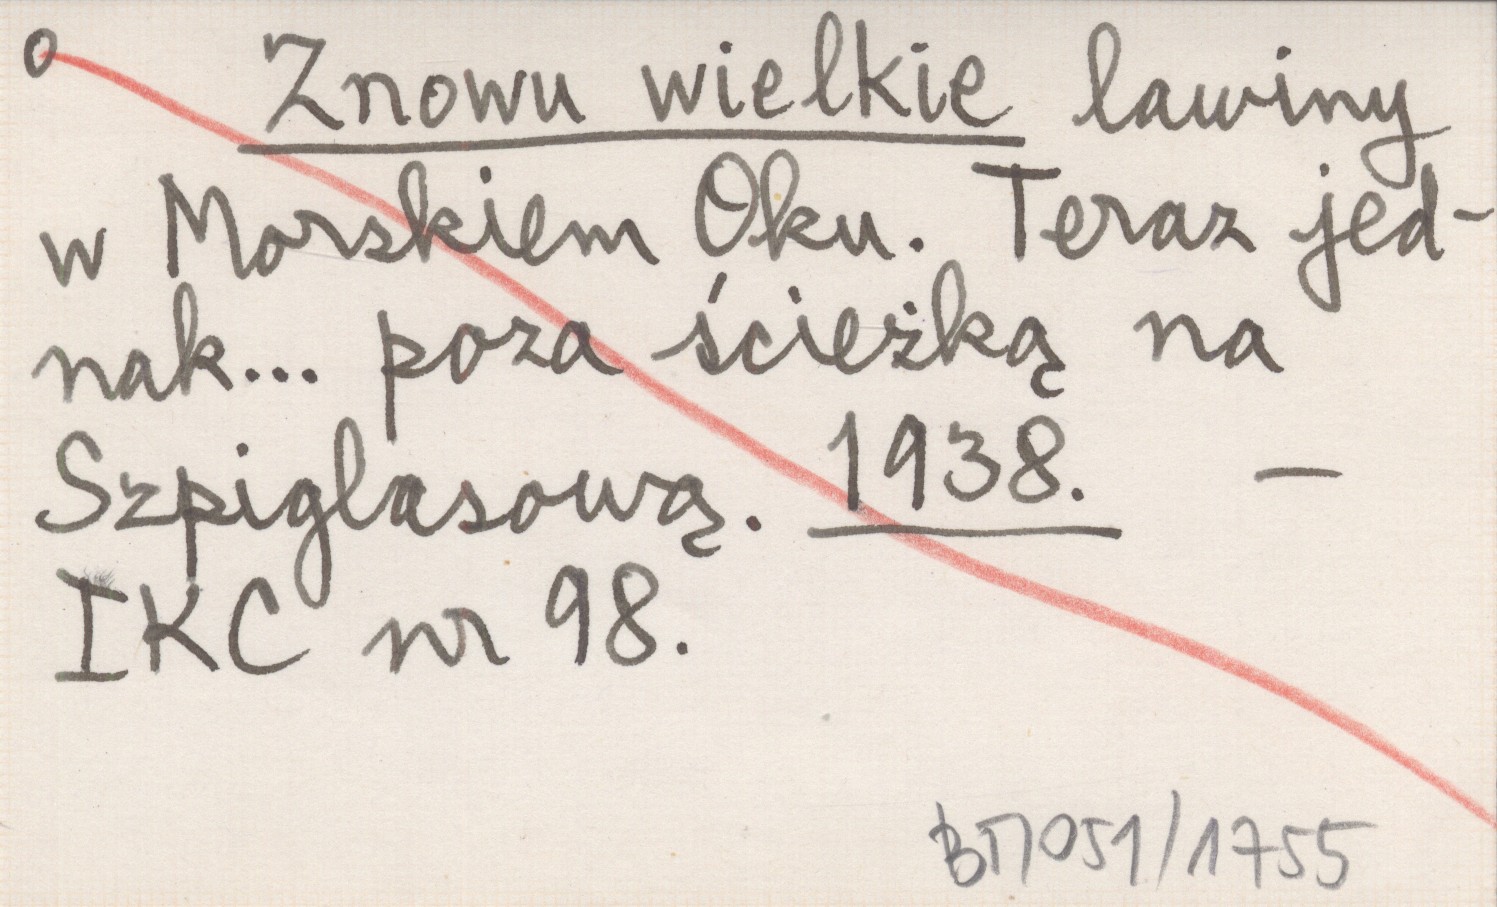 o Znowu wielkie lawiny
w Morskiem Oku. Teraz jed-
nak... poza ścieżką na
Szpiglasową. 1938. —
IKC nr 98.
BT/1051/1755